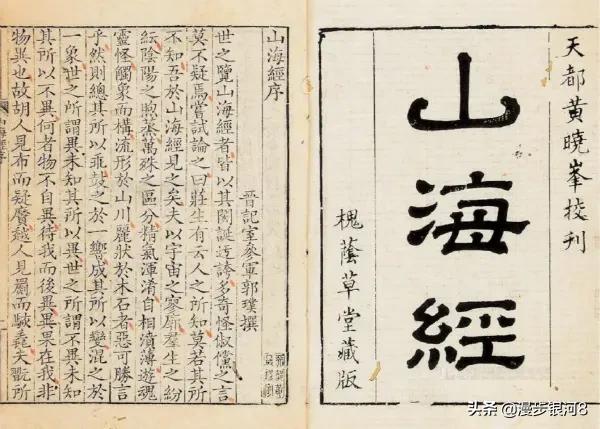 天都黄曉峯挍刊
山海經
槐蔭草堂藏版
山海經序
晉記室參軍郭璞撰
世之覽山海經者皆以其閎誕迂誇多奇怪俶儻之言
莫不疑焉嘗試論之曰莊生有云人之所知莫若其所
不知吾於山海經見之矣夫以宇宙之寥廓羣生之紛
紜陰陽之煦蒸萬殊之區分精氣渾淆自相濆薄遊魂
靈怪觸象而構流形於山川麗狀於木石者惡可勝言
乎然則總其所以乖鼓之於一響成其所以變混之於
一象世之所謂異未知其所以異世之所謂不異未知
其所以不異何者物不自異待我而後異異果在我非
物異也故胡人見布而疑黂越人見罽而駭毳夫翫所
头条 @漫步银河8